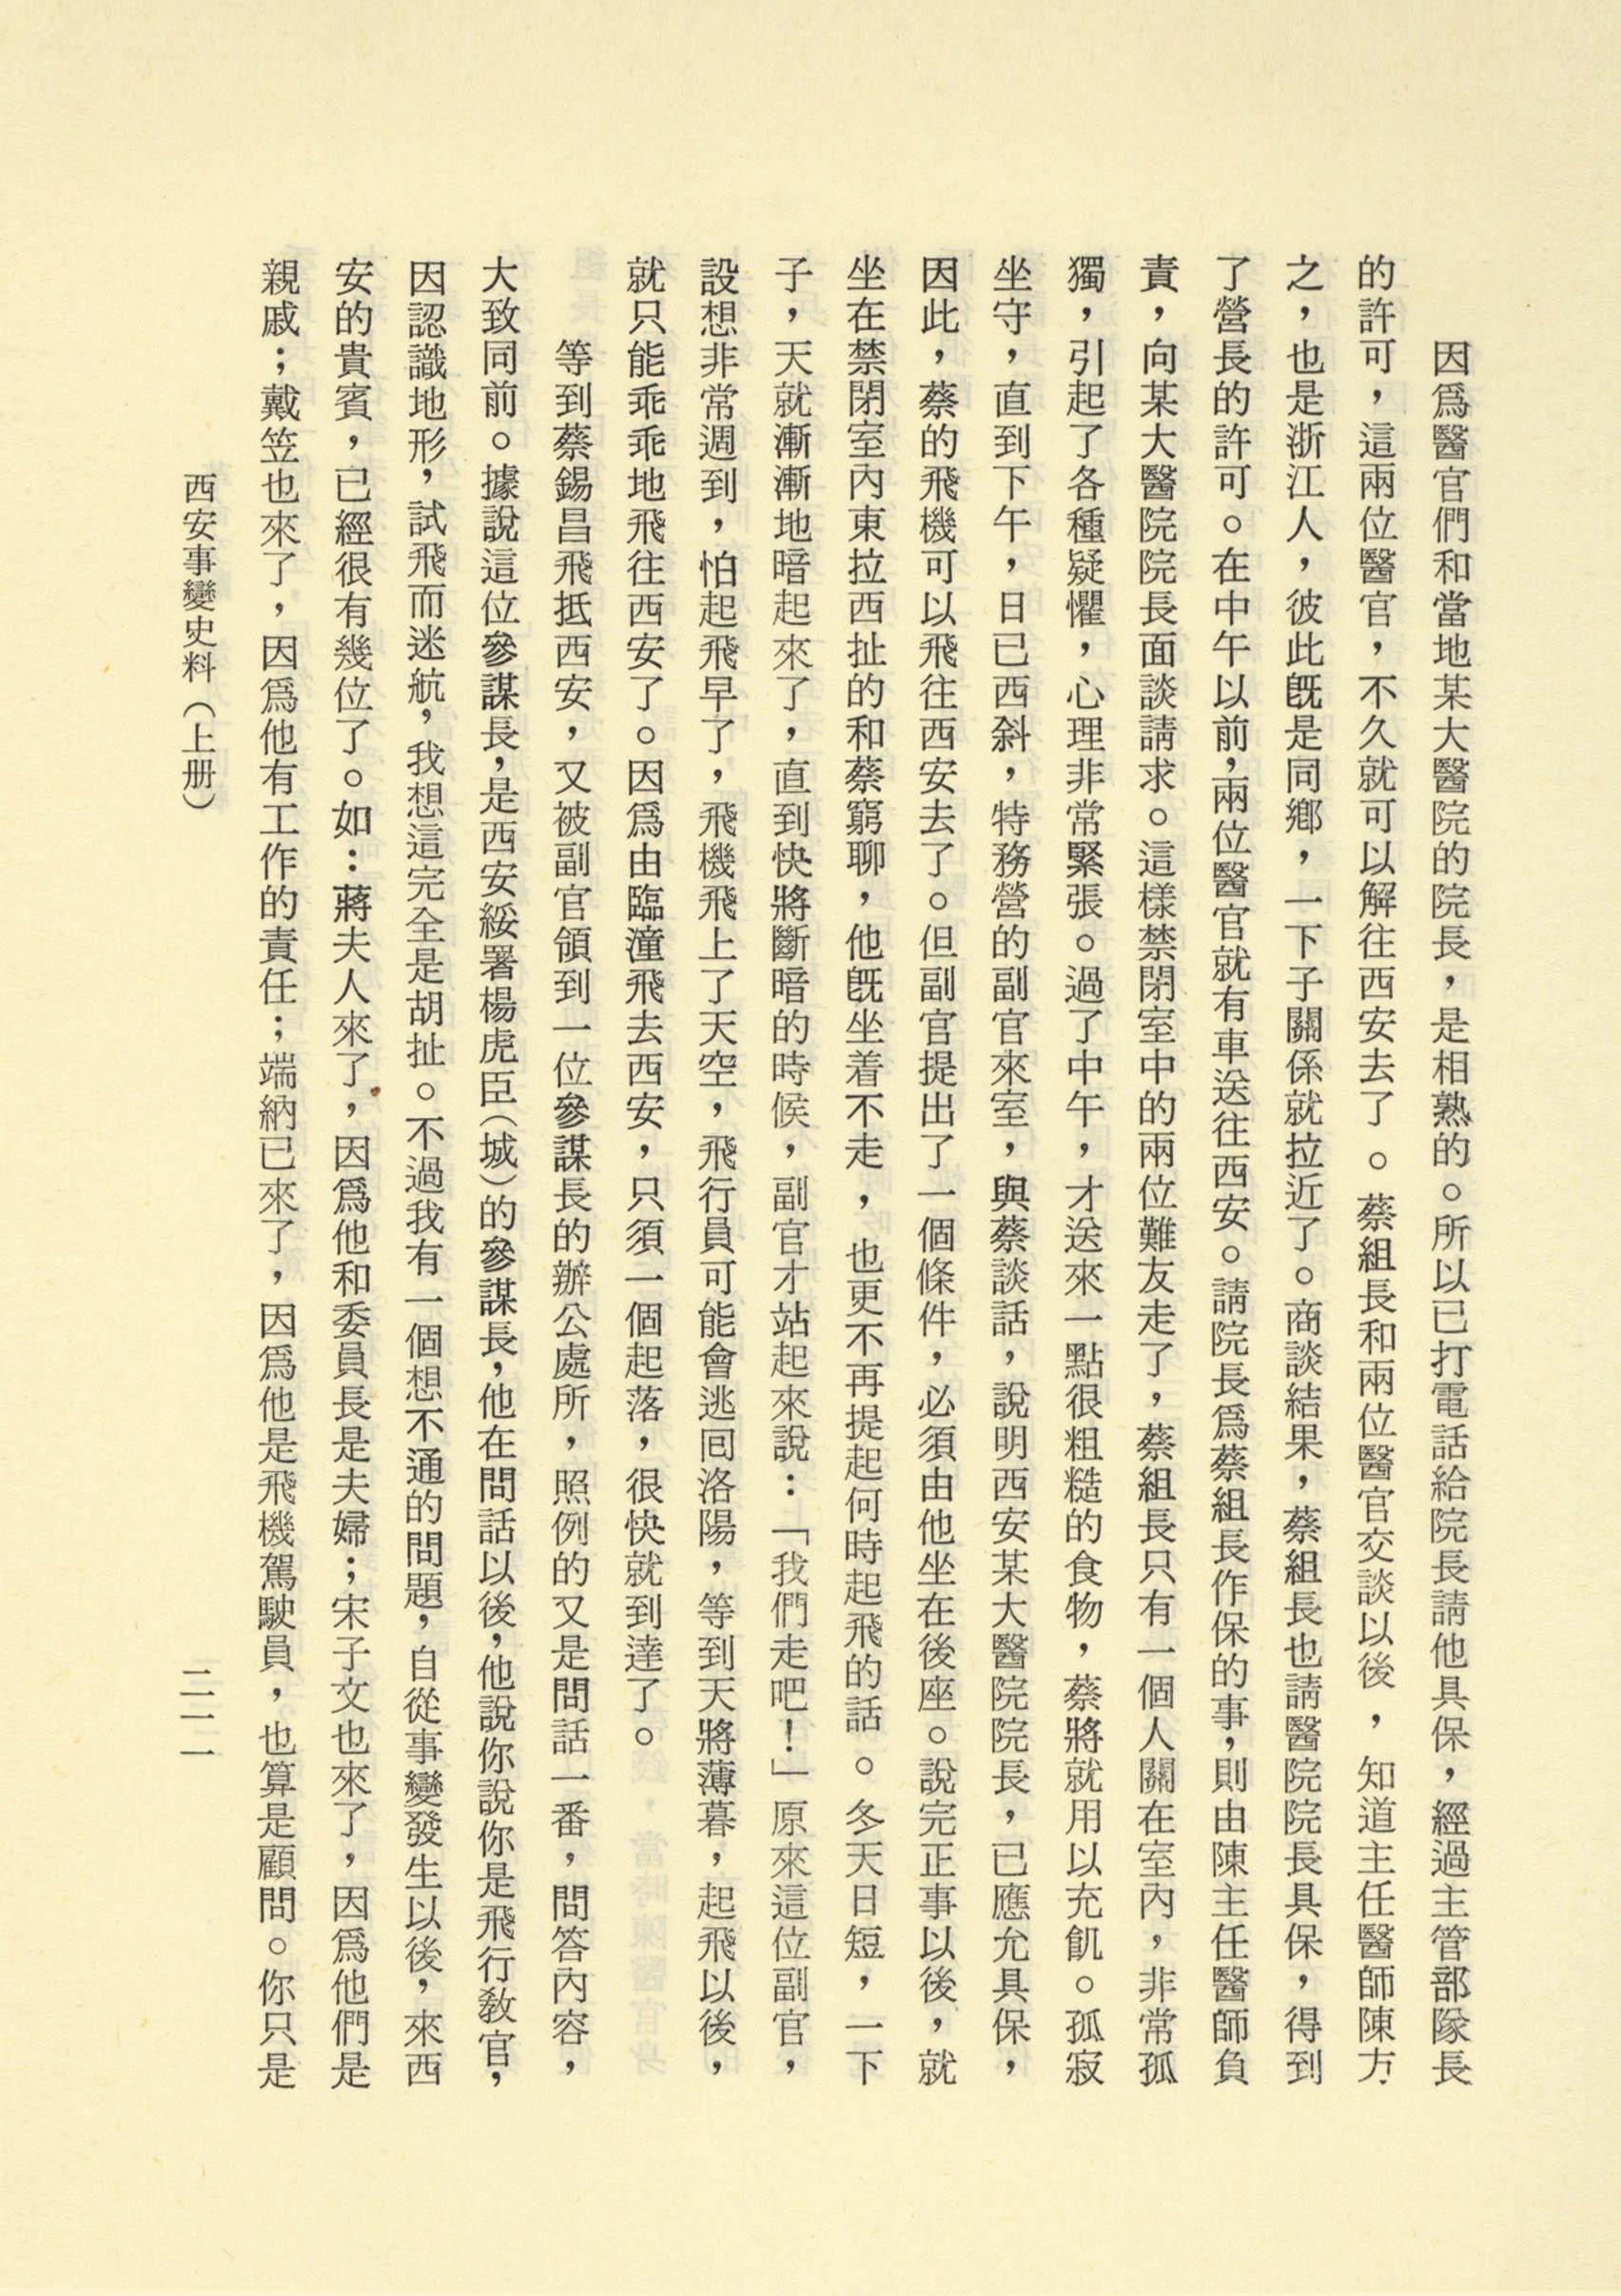 因爲醫官們和當地某大醫院的院長，是相熟的。所以已打電話給院長請他具保，經過主管部隊長
的許可，這兩位醫官，不久就可以解往西安去了。蔡組長和兩位醫官交談以後，知道主任醫師陳方
之，也是浙江人，彼此旣是同鄉，一下子關係就拉近了。商談結果，蔡組長也請醫院院長具保，得到
了營長的許可。在中午以前，兩位醫官就有車送往西安。請院長爲蔡組長作保的事，則由陳主任醫師負
責，向某大醫院院長面談請求。這樣禁閉室中的兩位難友走了，蔡組長只有一個人關在室內，非常孤
獨，引起了各種疑懼，心理非常緊張。過了中午，才送來一點很粗糙的食物，蔡將就用以充飢。孤寂
坐守，直到下午，日已西斜，特務營的副官來室，與蔡談話，說明西安某大醫院院長，已應允具保，
因此，蔡的飛機可以飛往西安去了。但副官提出了一個條件，必須由他坐在後座。說完正事以後，就
坐在禁閉室內東拉西扯的和蔡窮聊，他旣坐着不走，也更不再提起何時起飛的話。冬天日短，一下
子，天就漸漸地暗起來了，直到快將斷暗的時候，副官才站起來說：「我們走吧！」原來這位副官，
設想非常週到，怕起飛早了，飛機飛上了天空，飛行員可能會逃囘洛陽，等到天將薄暮，起飛以後，
就只能乖乖地飛往西安了。因爲由臨潼飛去西安，只須一個起落，很快就到達了。
等到蔡錫昌飛抵西安，又被副官領到一位參謀長的辦公處所，照例的又是問話一番，問答內容，
大致同前。據說這位參謀長，是西安綏署楊虎臣（城）的參謀長，他在問話以後，他說你說你是飛行敎官，
因認識地形，試飛而迷航，我想這完全是胡扯。不過我有一個想不通的問題，自從事變發生以後，來西
安的貴賓，已經很有幾位了。如：蔣夫人來了，因爲他和委員長是夫婦；宋子文也來了，因爲他們是
親戚；戴笠也來了，因爲他有工作的責任；端納已來了，因爲他是飛機駕駛員，也算是顧問。你只是
西安事變史料（上册）
二二一